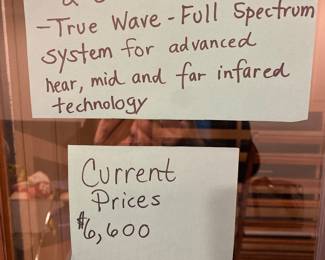 -True Wave - Full Spectrum
system for advanced
hear, mid and far infared
technology
Current
Prices
$6,600